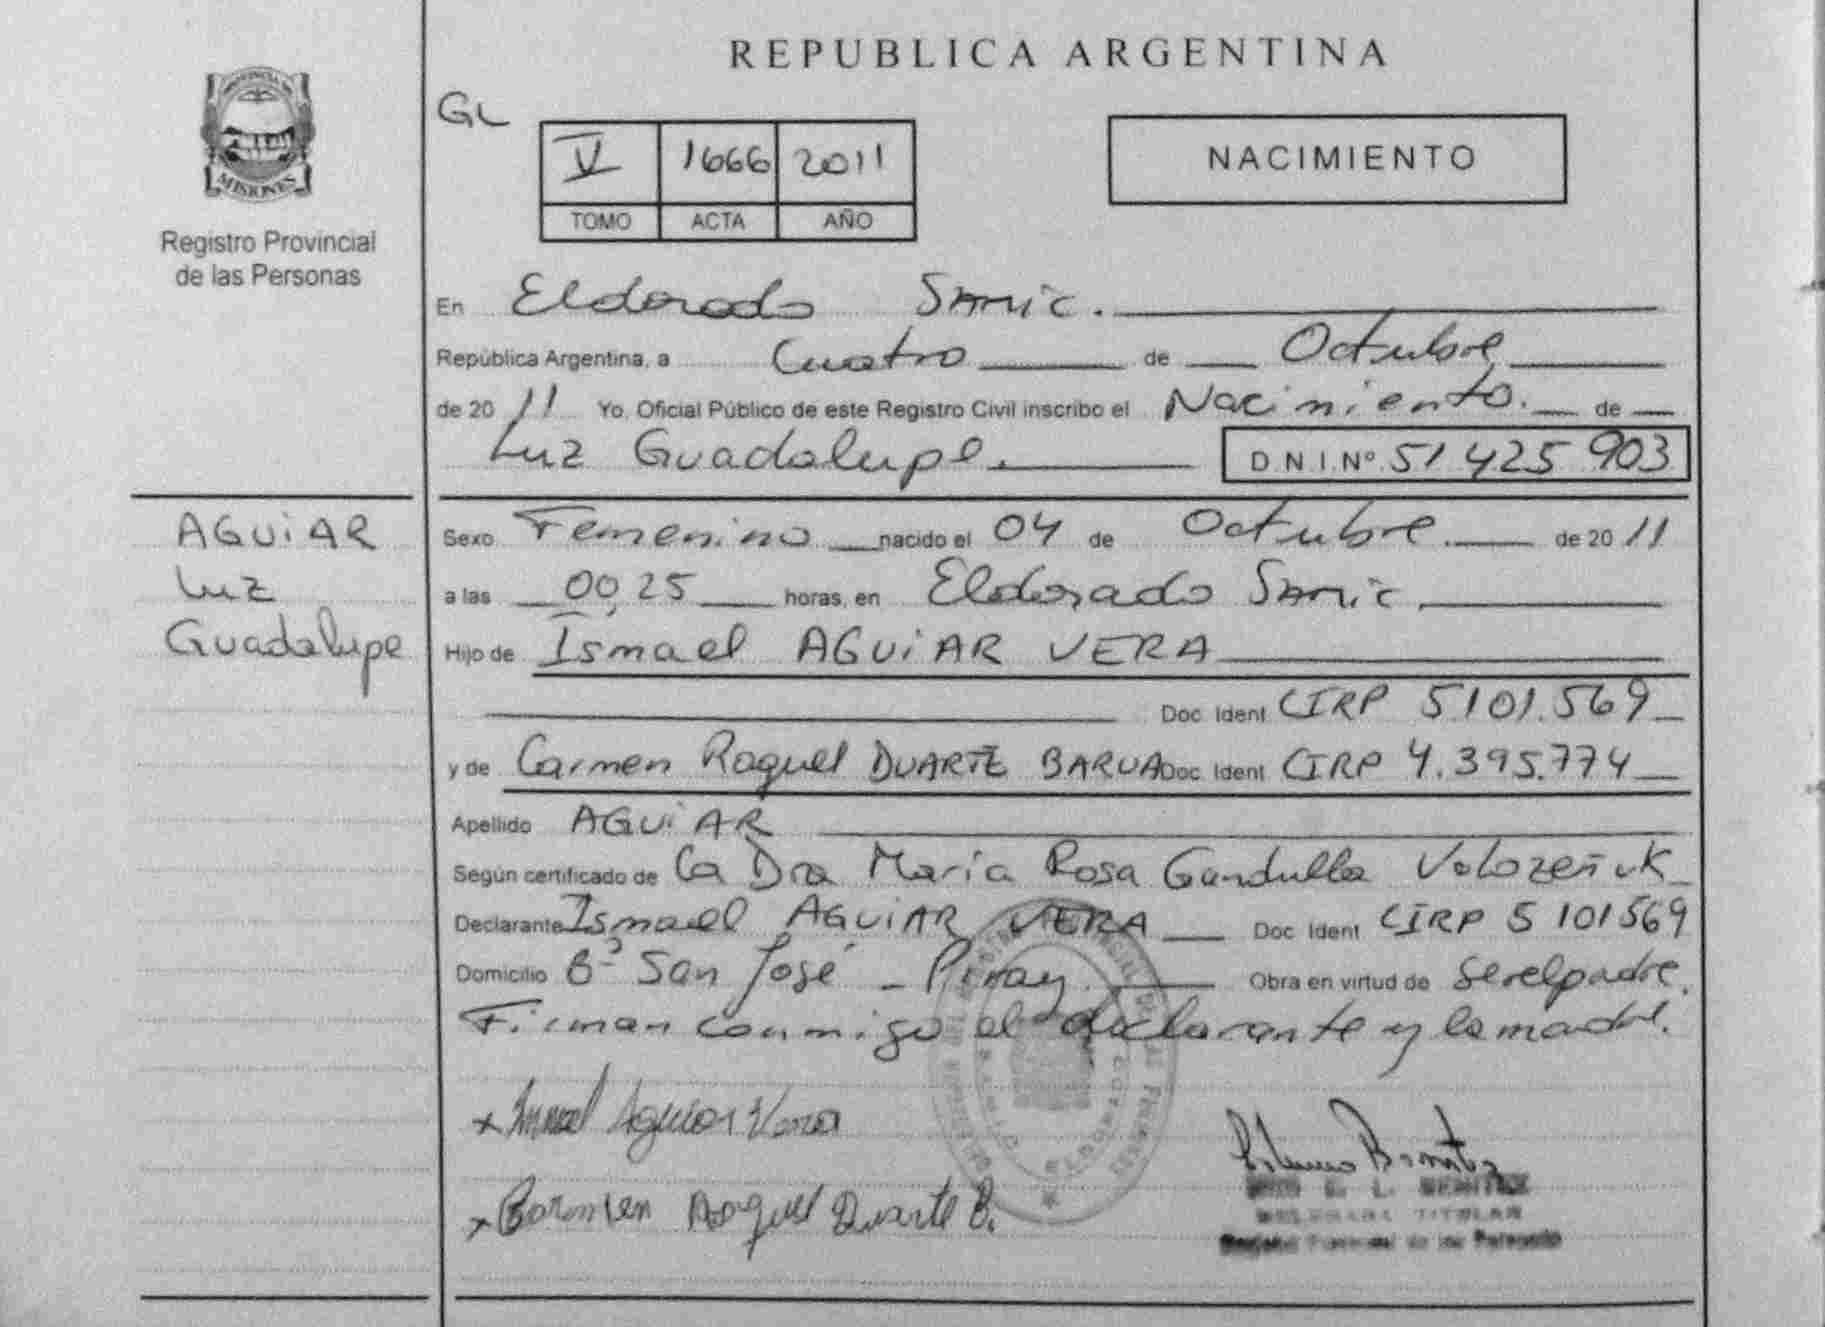 PROVINCIA DE
MISIONES
Registro Provincial
de las Personas
AGUiAR
Luz
Guadalupe
REPUBLICA ARGENTINA
GL
V 1666 2011
TOMO ACTA AÑO
NACIMIENTO
En Eldorado Samic.
República Argentina, a Cuatro de Octubre
de 20 11 Yo, Oficial Público de este Registro Civil inscribo el Nacimiento. de
Luz Guadalupe. D.N.I.Nº 51 425 903
Sexo Femenino nacido el 04 de Octubre. de 20 11
a las 00,25 horas, en Eldorado Samic.
Hijo de Ismael AGUiAR VERA
Doc Ident CIRP 5.101.569
y de Carmen Raquel DUARTE BARUA Doc Ident CIRP 4.395.774
Apellido AGUiAR
Según certificado de la Dra María Rosa Gandulla Volozeñuk
Declarante Ismael AGUiAR VERA Doc Ident CIRP 5 101569
Domicilio Bº San José - Piray. Obra en virtud de ser el padre.
Firman conmigo el declarante y la madre.
x Ismael Aguiar Vera
x Carmen Raquel Duarte B.
BENITEZ
TITULAR
de las Personas